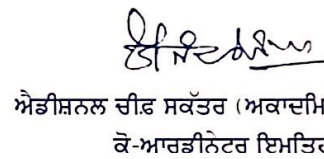 ਐਡੀਸ਼ਨਲ ਚੀਫ਼ ਸਕੱਤਰ (ਅਕਾਦਮਿ
ਕੋ-ਆਰਡੀਨੇਟਰ ਇਮਤਿਰ